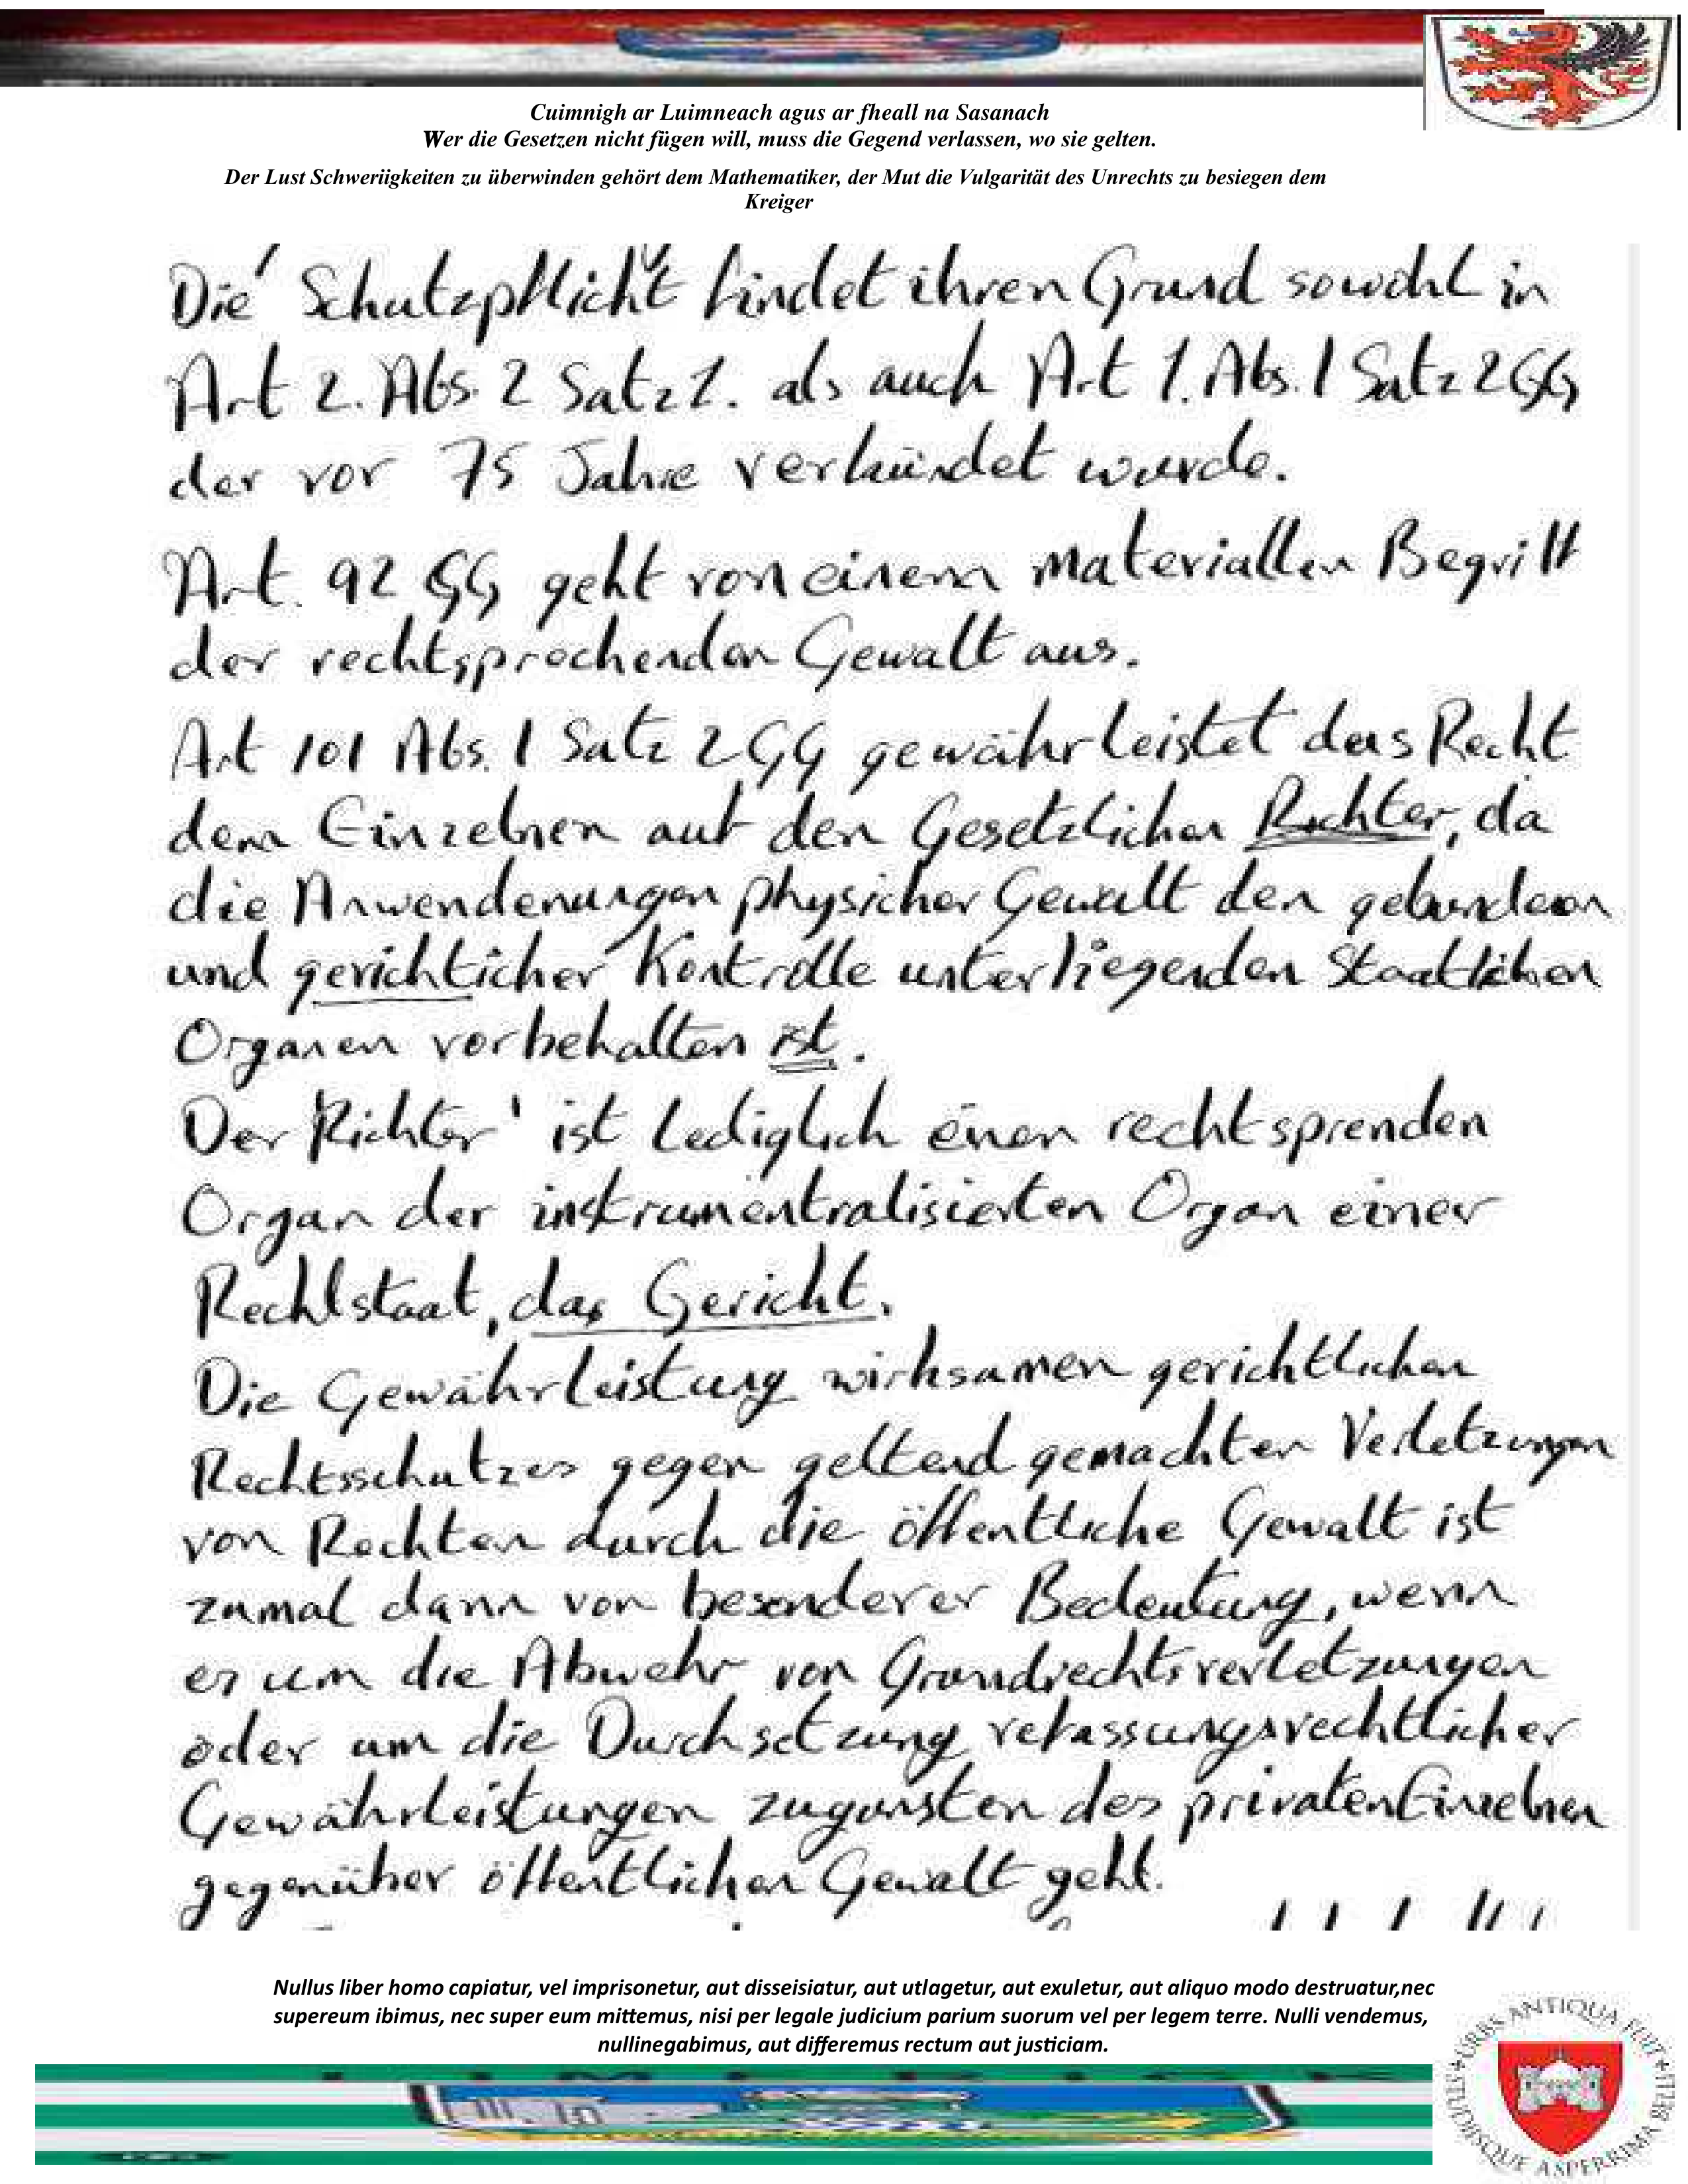 Cuimnigh ar Luimneach agus ar fheall na Sasanach
Wer die Gesetzen nicht fügen will, muss die Gegend verlassen, wo sie gelten.
Der Lust Schweriigkeiten zu überwinden gehört dem Mathematiker, der Mut die Vulgarität des Unrechts zu besiegen dem
Kreiger
Die Schutzpflicht findet ihren Grund sowohl in
Art 2. Abs. 2 Satz 1. als auch Art 1. Abs. 1 Satz 2 GG
der vor 75 Jahre verkündet wurde.
Art. 92 GG geht von einem materiallen Begriff
der rechtsprechenden Gewalt aus.
Art 101 Abs. 1 Satz 2 GG gewährleistet das Recht
dem Einzelnen auf den Gesetzlichen Richter, da
die Anwendenungen physicher Gewalt den gebundenen
und gerichticher Kontrolle unterliegenden Staatlichen
Organen vorbehalten ist.
Der 'Richter' ist lediglich einen rechtsprenden
Organ der instrumentralisierten Organ einer
Rechtstaat, das Gericht.
Die Gewährleistung wirksamen gerichtlichen
Rechtsschutzes gegen geltend gemachten Verletzungen
von Rechten durch die öffentliche Gewalt ist
zumal dann von besonderer Bedeutung, wenn
es um die Abwehr von Grundrechtsverletzungen
oder um die Durchsetzung verfassungsrechtlicher
Gewährleistungen zugunsten des privaten Einzelnen
gegenüber öffentlichen Gewalt geht.
Nullus liber homo capiatur, vel imprisonetur, aut disseisiatur, aut utlagetur, aut exuletur, aut aliquo modo destruatur,nec
supereum ibimus, nec super eum mittemus, nisi per legale judicium parium suorum vel per legem terre. Nulli vendemus,
nullinegabimus, aut differemus rectum aut justiciam.
URBS ANTIQUA FUIT STUDIISQUE ASPERRIMA BELLI